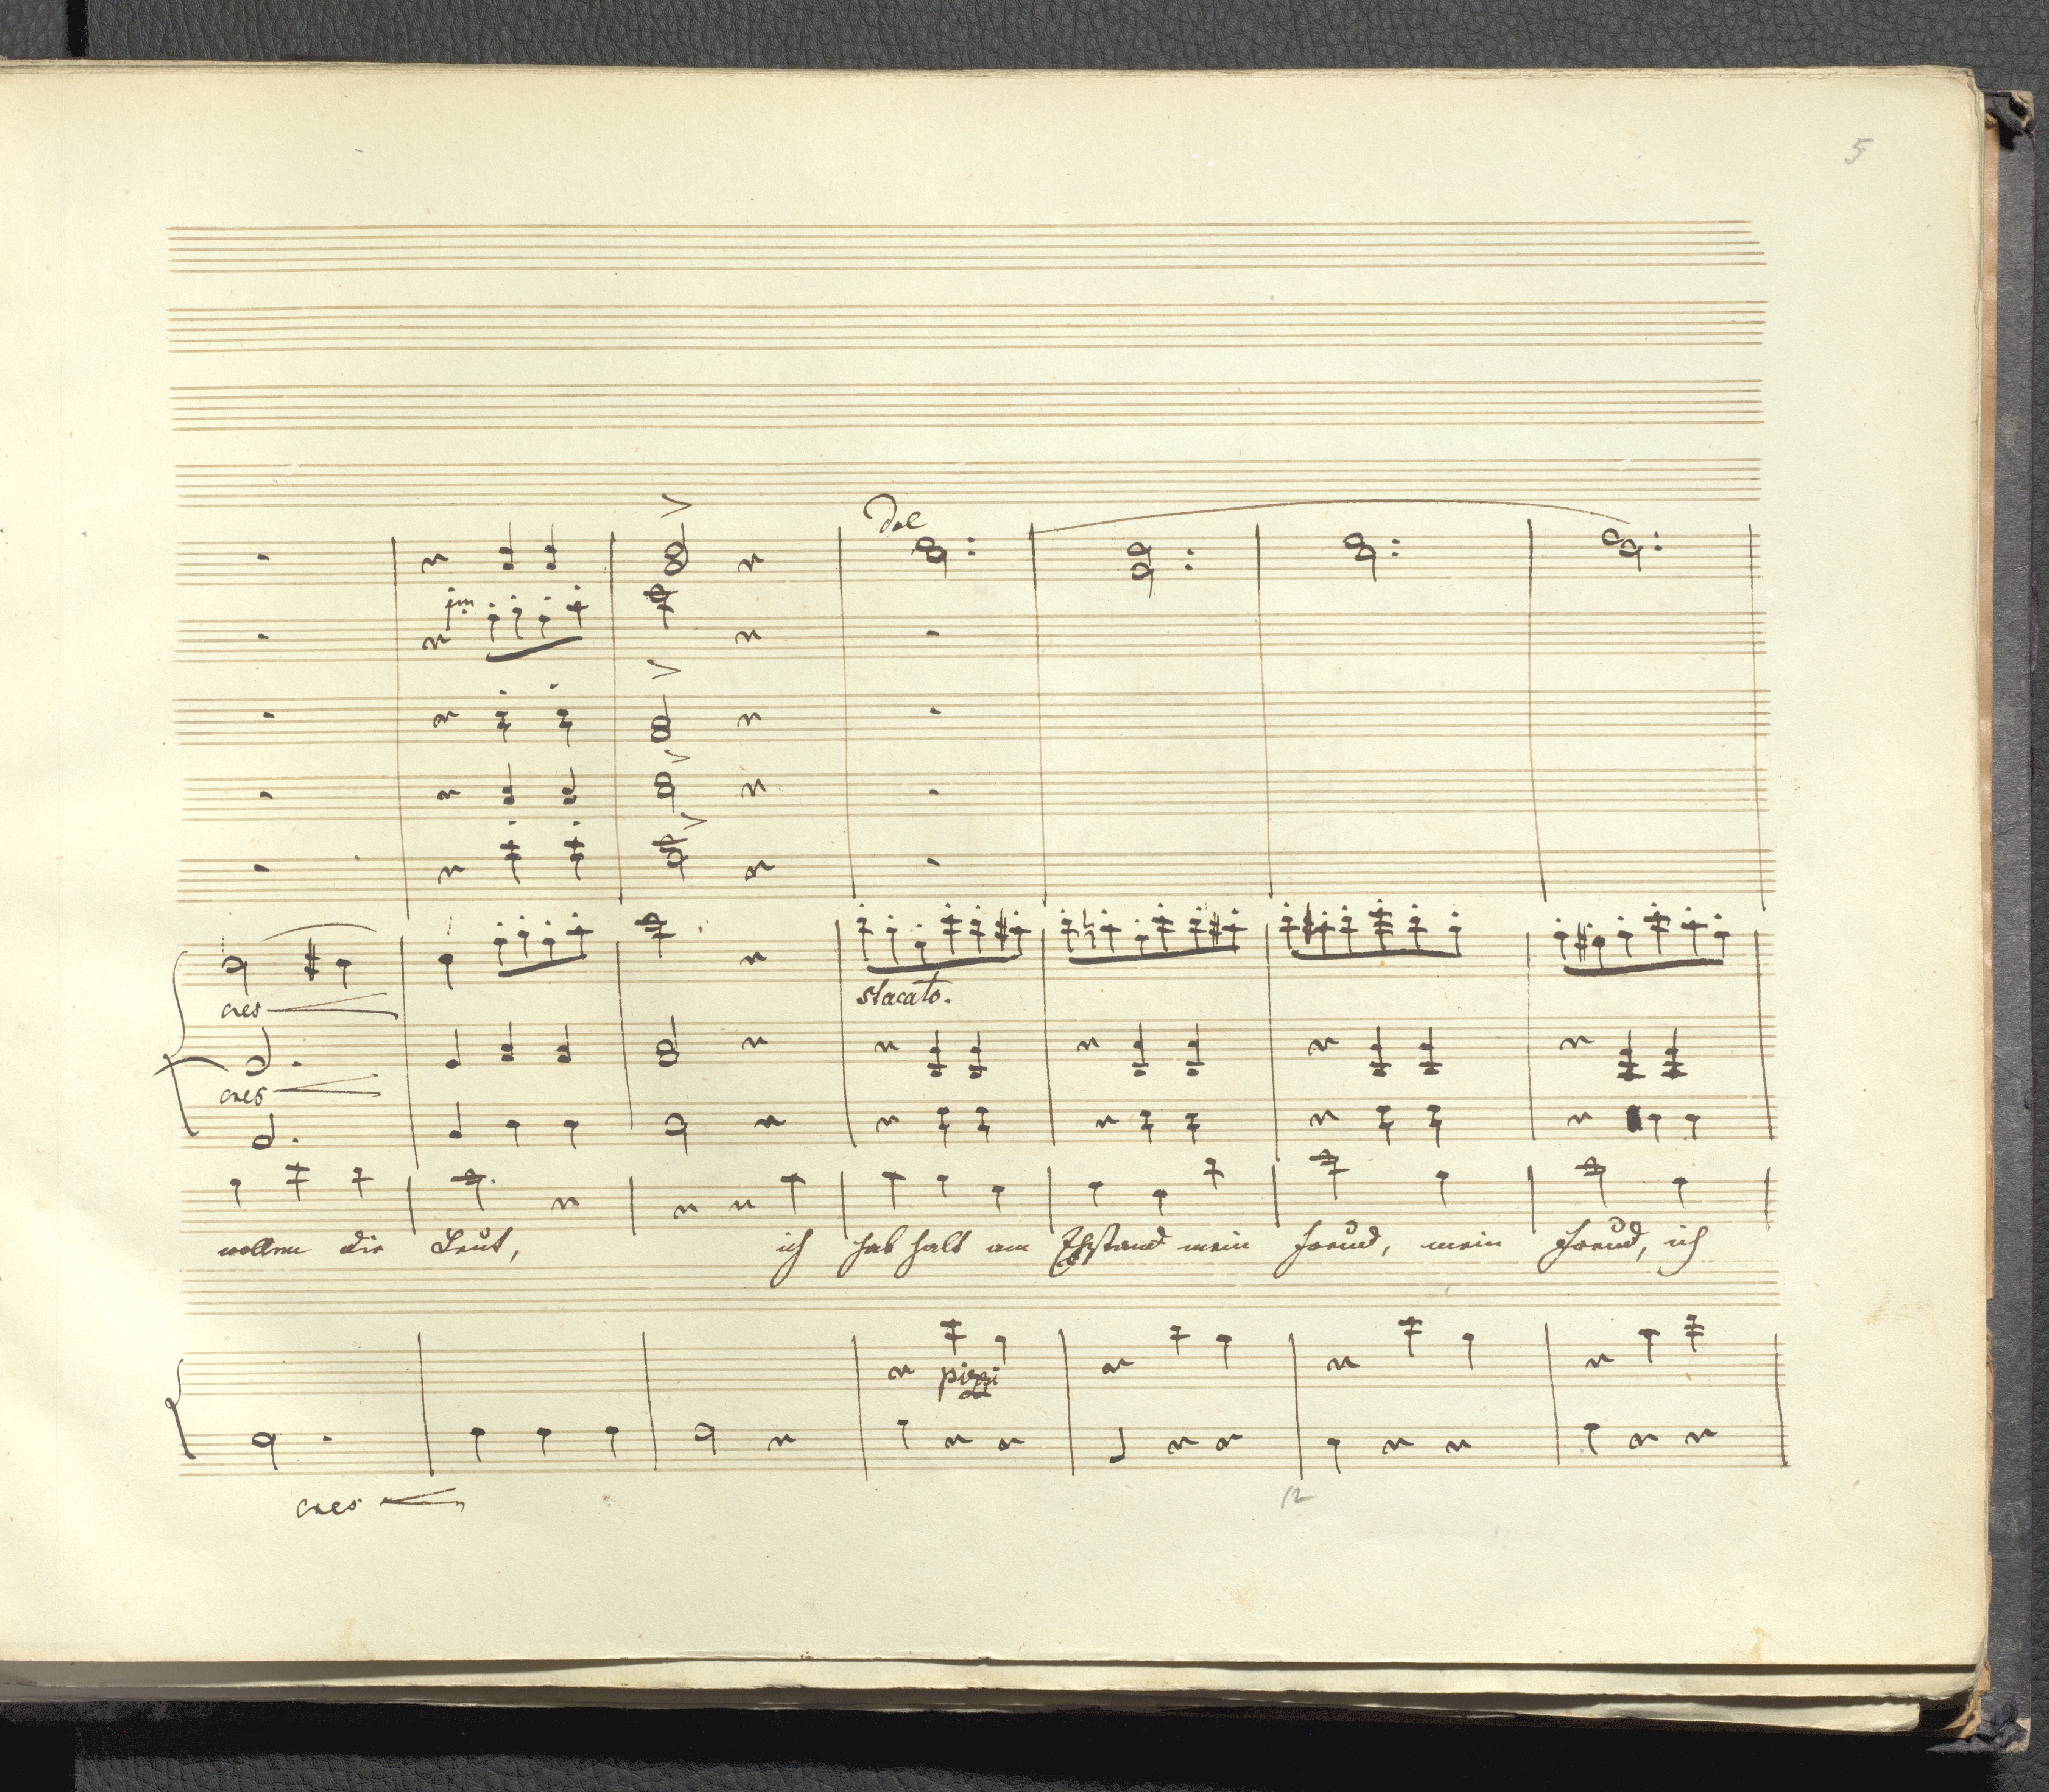 5
Dol
im
cres
stacato.
cres
wollen die Leut, ich hab halt am Ehstand mein Freud, mein Freud, ich
pizzi
cres
12